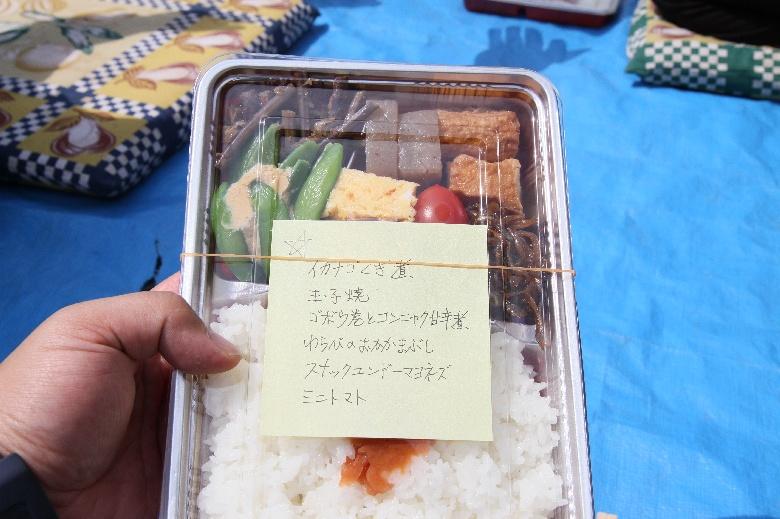 ☆
イカナゴくぎ煮、
玉子焼
ゴボウ巻とコンニャク甘辛煮、
わらびのおかかまぶし
スナックエンドーマヨネズ
ミニトマト